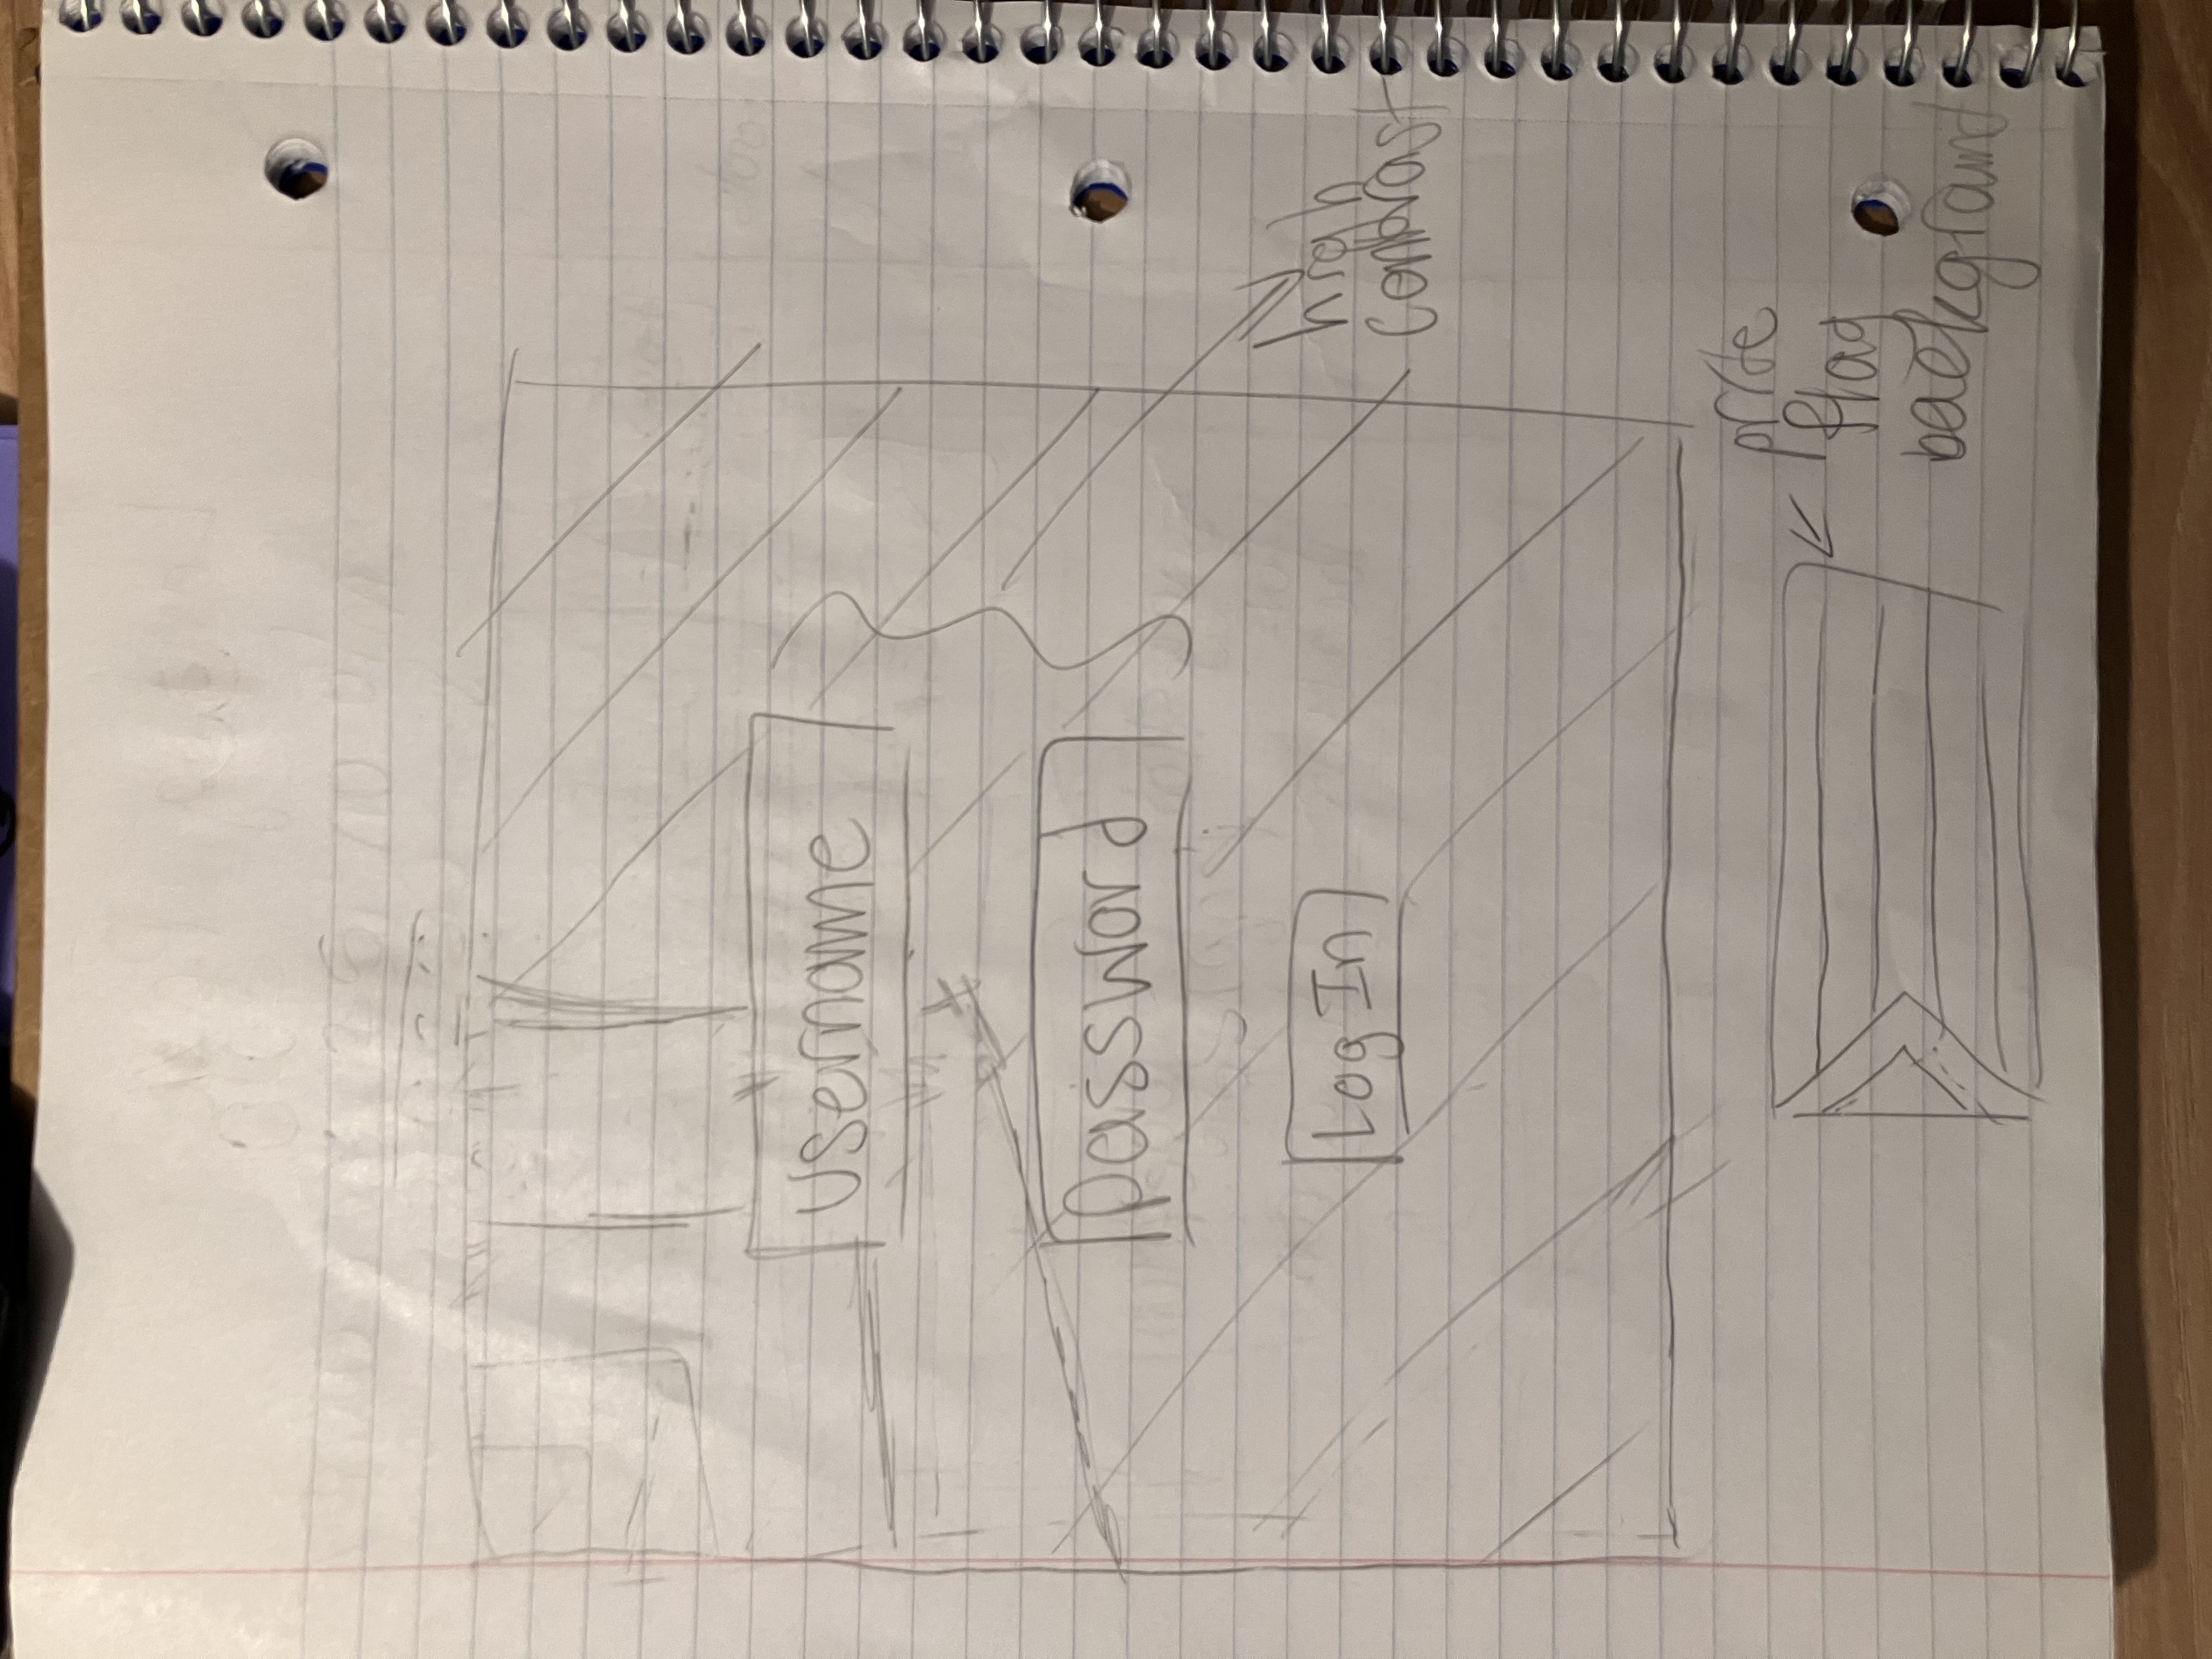 Username
password
Log In
high
contrast
pride
flag
background